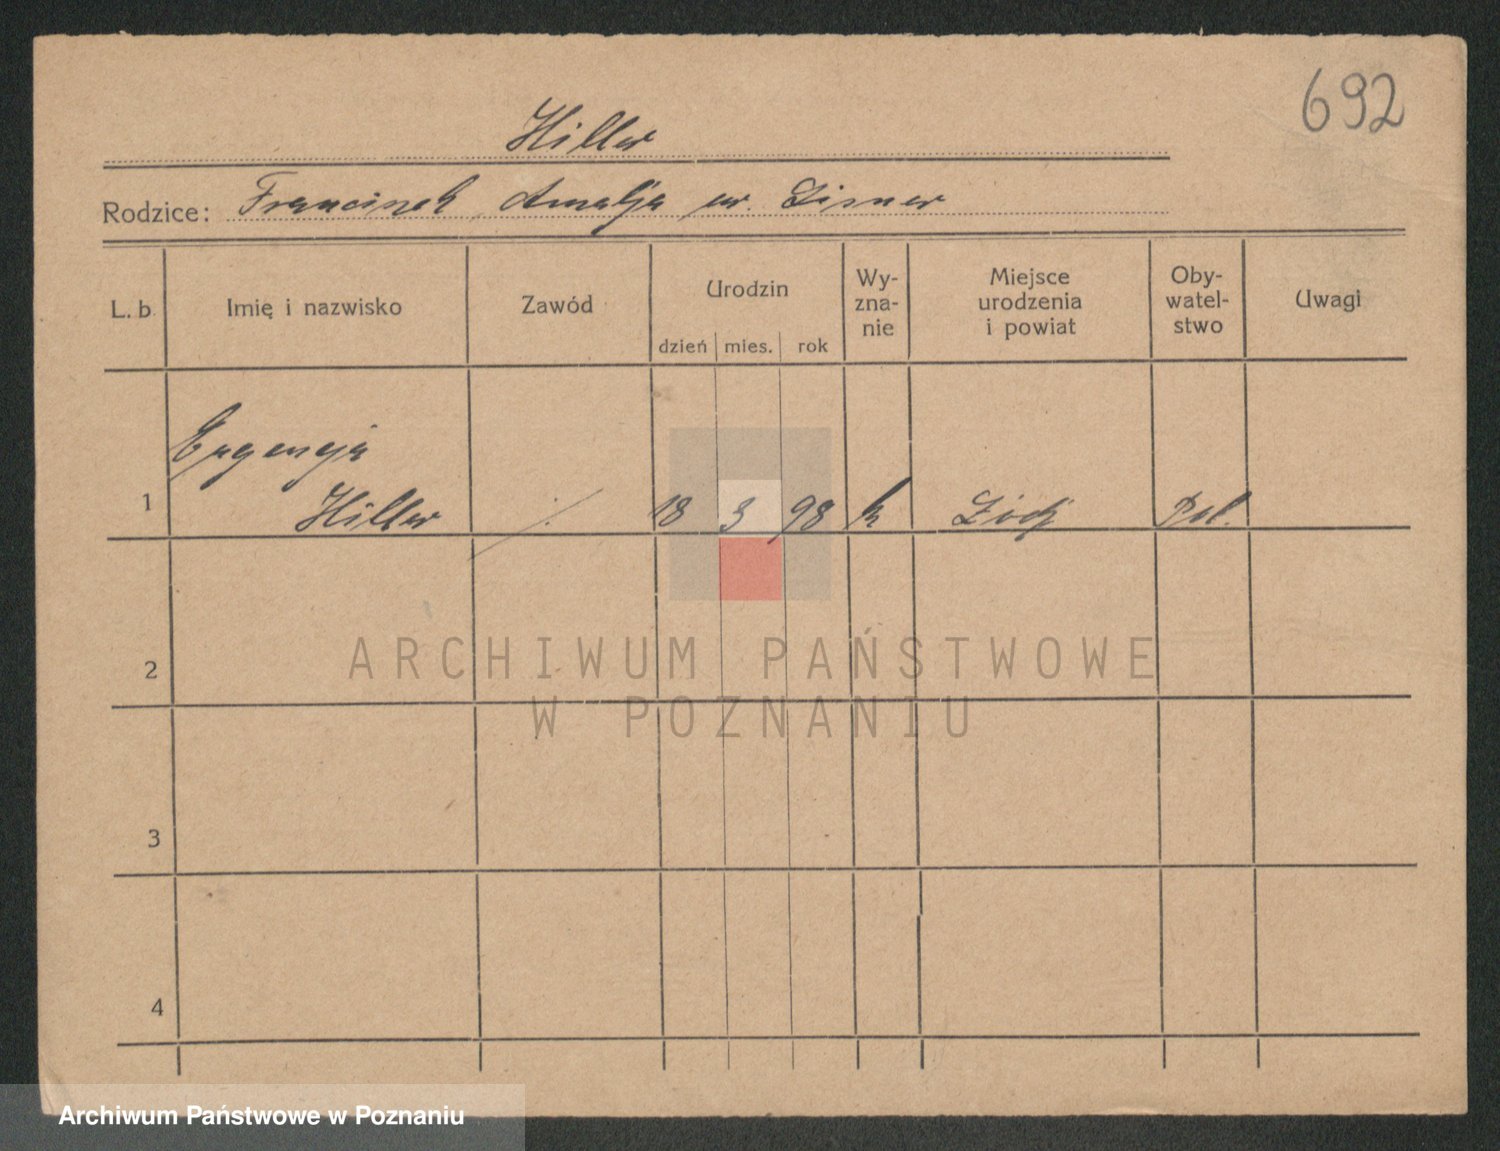 692
Hiller
Rodzice: Franciszek, Amalja ur. Lisner
L. b.
Imię i nazwisko
Zawód
Urodzin
dzień
mies.
rok
Wy-
zna-
nie
Miejsce
urodzenia
i powiat
Oby-
watel-
stwo
Uwagi
Eugenja
1 Hiller ./. 18 3 98 k Łódź Pol.
2
3
4
ARCHIWUM PAŃSTWOWE
W POZNANIU
Archiwum Państwowe w Poznaniu